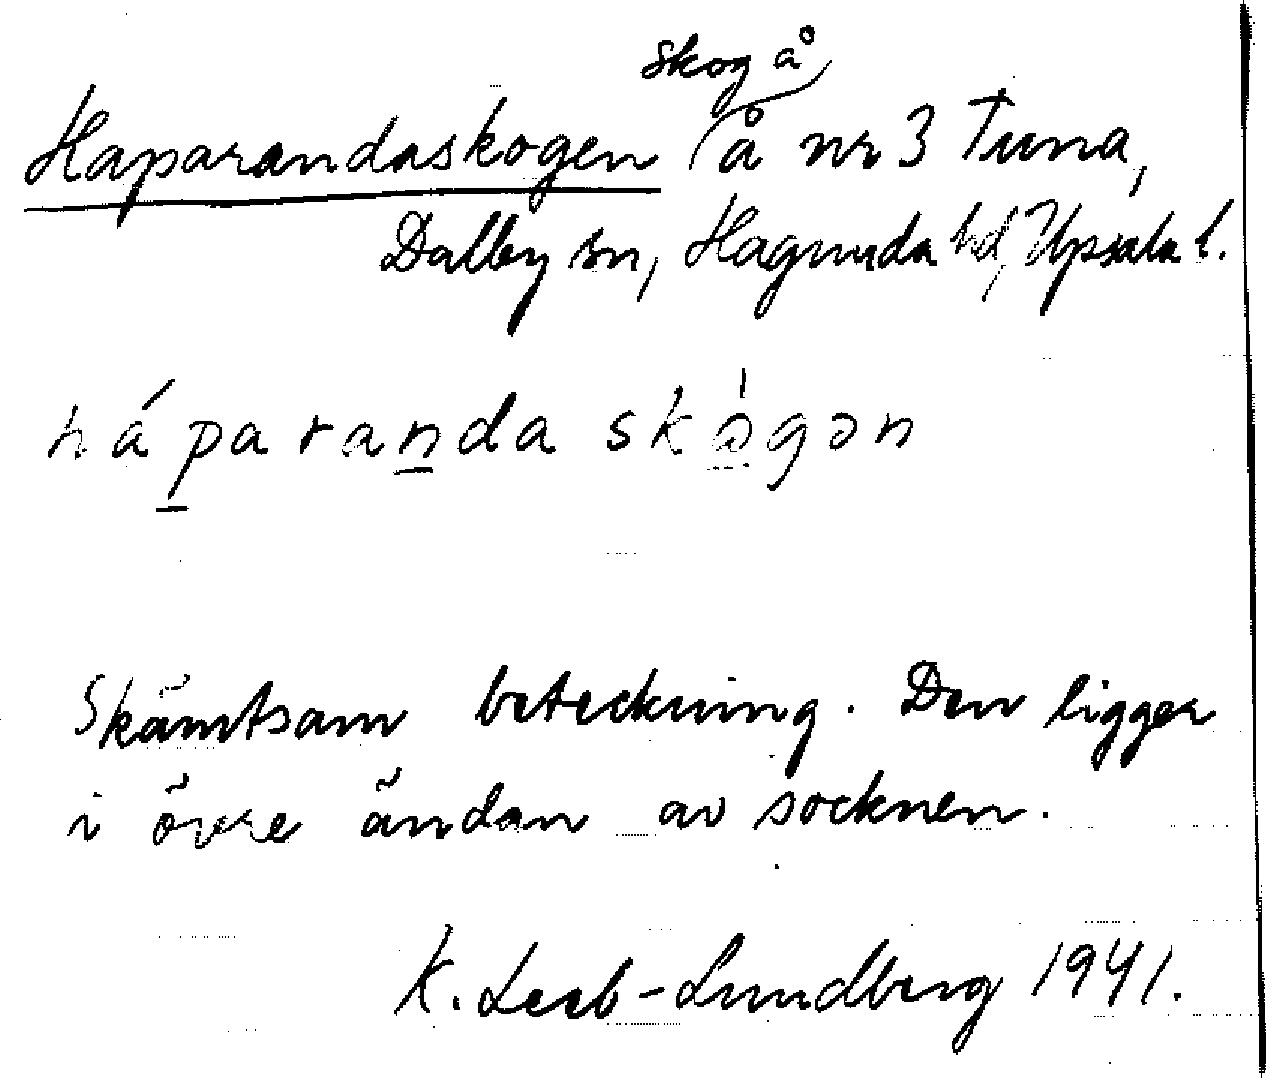 skog å
Haparandaskogen å nr 3 Tuna,
Dalby sn, Hagunda hd, Upsala l.
háparanda skògən
Skämtsam beteckning. Den ligger
i övre ändan av socknen.
K. Leeb-Lundberg 1941.